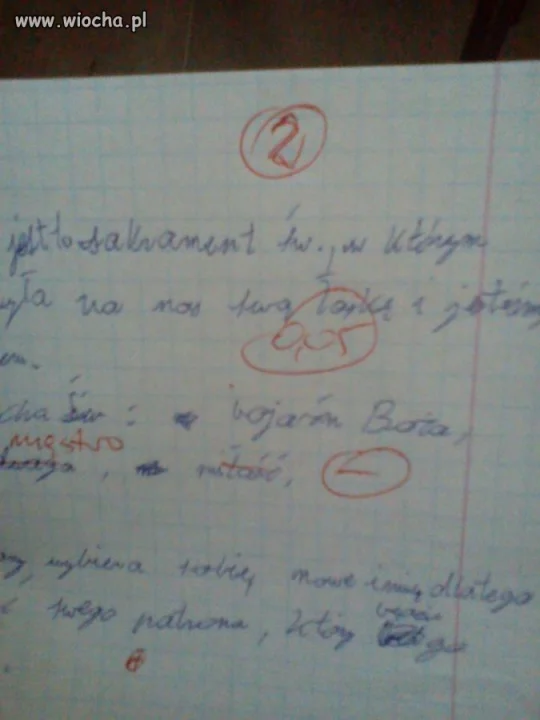 www.wiocha.pl
2
jest to sakrament św., w którym
na nas swą łaskę i jesteśmy
0,05
cha św: bojaźń Boża,
męstwo
, miłość, -
wybiera sobie nowe imię dlatego
swego patrona, który będzie go